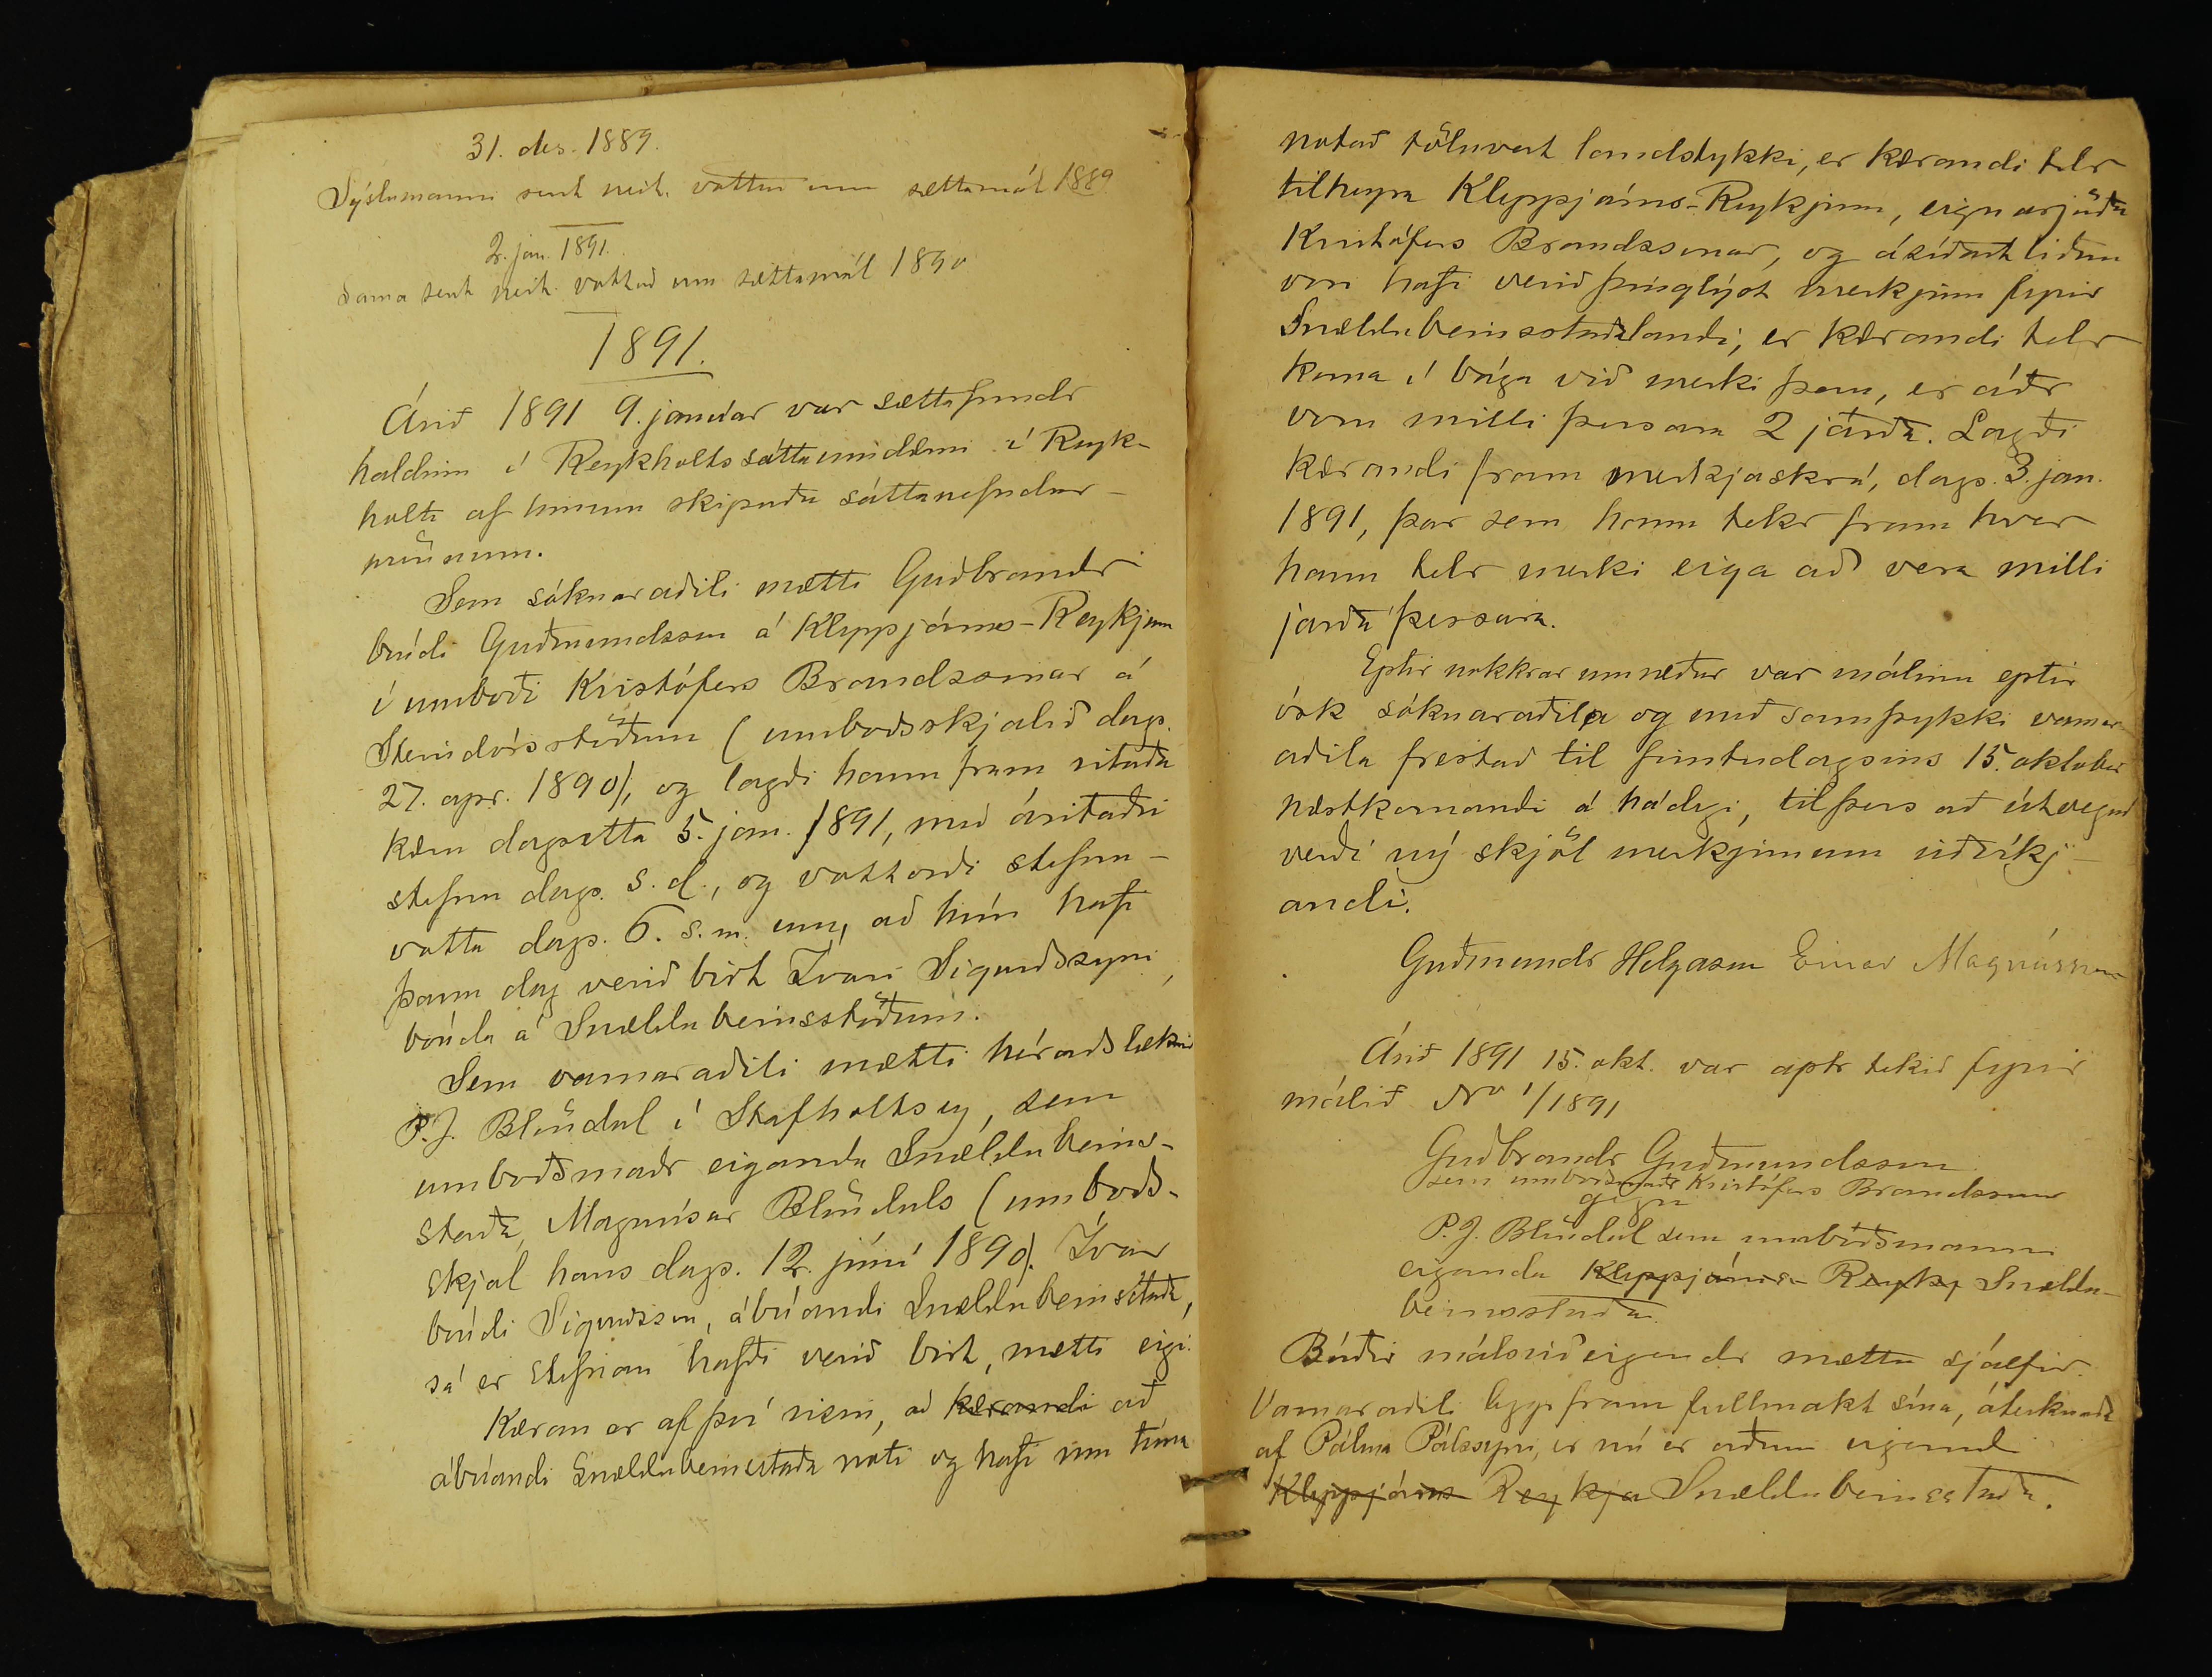 31. des. 1889.
Sýslumanni sent neit. vottað um sættamál 1889
2. jan. 1891.
Sama sent neit. vottað um sættamál 1890
1891.
Árið 1891 9. janúar var sættafundr
haldinn í Reykholtssáttaumdæmi í Reyk-
holti af hinum skipuðu sáttanefndar-
mönnum.
Sem sóknaraðili mætti Guðbrandr
bóndi Guðmundsson á Kleppjárns-Reykjum
í umboði Kristófers Brandssonar á
Steindórsstöðum (umboðsskjalið dags.
27. apr. 1890), og lagði hann fram ritaða
kæru dagsetta 5. jan. 1891, með áritaðri
stefnu dags. s. d., og vottorði stefnu-
votta dags. 6. s. m. um, að hún hafi
þann dag verið birt Ívari Sigurðssyni,
bónda á Snældubeinsstöðum.
Sem varnaraðili mætti héraðslæknir
P. J. Blöndal í Stafholtsey, sem
umboðsmaðr eiganda Snældubeins-
staða, Magnúsar Blöndals (umboðs-
skjal hans dags. 12. júní 1890). Ívar
bóndi Sigurðsson, ábúandi Snældubeinsstaða,
sá er stefnan hafði verið birt, mætti eigi.
Kæran er af því risin, að kærandi að
ábúandi Snældubeinsstaða noti og hafi um tíma
notað töluvert landstykki, er kærandi telr
tilheyra Kleppjárns-Reykjum, eignarjörðu
Kristófers Brandssonar, og á síðastliðnu
vori hafi verið þinglýst merkjum fyrir
Snældubeinsstaðalandi, er kærandi telr
koma í bága við merki þau, er áðr
voru milli þessara 2 jarða. Lagði
kærandi fram merkjaskrá, dags. 3. jan.
1891, þar sem hann tekr fram hver
hann telr merki eiga að vera milli
jarða þessara.
Eptir nokkrar umræður var málinu eptir
ósk sóknaraðila og með samþykki varnar-
aðila frestað til fimtudagsins 15. oktober
næstkomandi á hádegi, til þess að útveguð
verði ný skjöl merkjunum viðvíkj-
andi.
Guðmundr Helgason Einar Magnússon
Árið 1891 15. okt. var aptr tekið fyrir
málið No 1/1891
Guðbrandr Guðmundsson
sem umboðsmaðr Kristófers Brandssonar
gegn
P. J. Blöndal sem umboðsmanni
eiganda Kleppjárns-Reykj Snældu-
beinsstaða.
Báðir málsviðeigendr mættu sjálfir.
Varnaraðili leggr fram fullmakt sína, áteiknaða
af Pálma Pálssyni, er nú er orðinn eigandi
Kleppjárns Reykja Snældubeinsstaða.